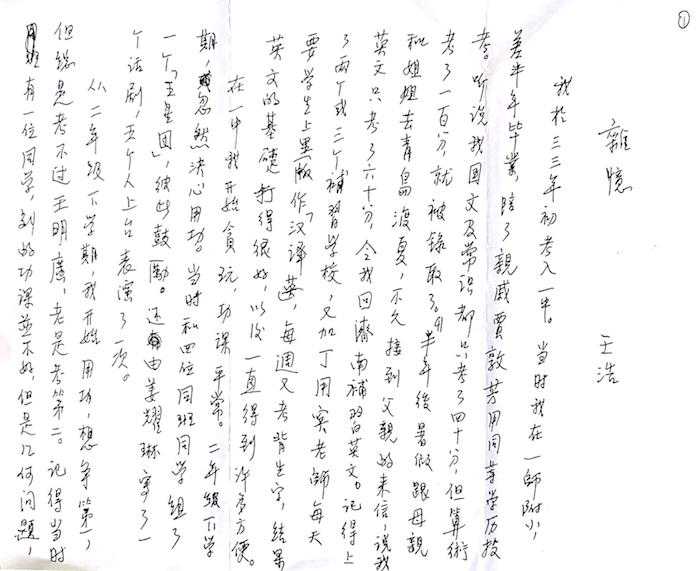 ①
雜憶
王浩
我於三三年初考入一中。当時我在一師附小，
差半年毕業，陪了親戚賈敦芳用同等学历投
考。听说我国文及常识都只考了四十分，但算術
考了一百分，就被録取了。半年後暑假跟母親
和姐姐去青島渡夏，不久接到父親的来信，説我
英文只考了六十分，令我回濟南補習英文。记得上
了两个或三个補習学校，又加丁用宾老师每天
要学生上黑板作「汉译英」，每週又考背生字，结果
英文的基礎打得很好，以後一直得到许多方便。
在一中我开始貪玩，功课平常。二年級下学
期，忽然决心用功。当时和四位同班同学组了
一个「五星団」，彼此鼓勵。还由姜耀琳寫了一
个话剧，五个人上台表演了一次。
从二年級下学期，我开始用功，想争第一，
但總是考不过王明廣，老是考第二。记得当时
班有一位同学，别的功课並不好，但是几何问题，